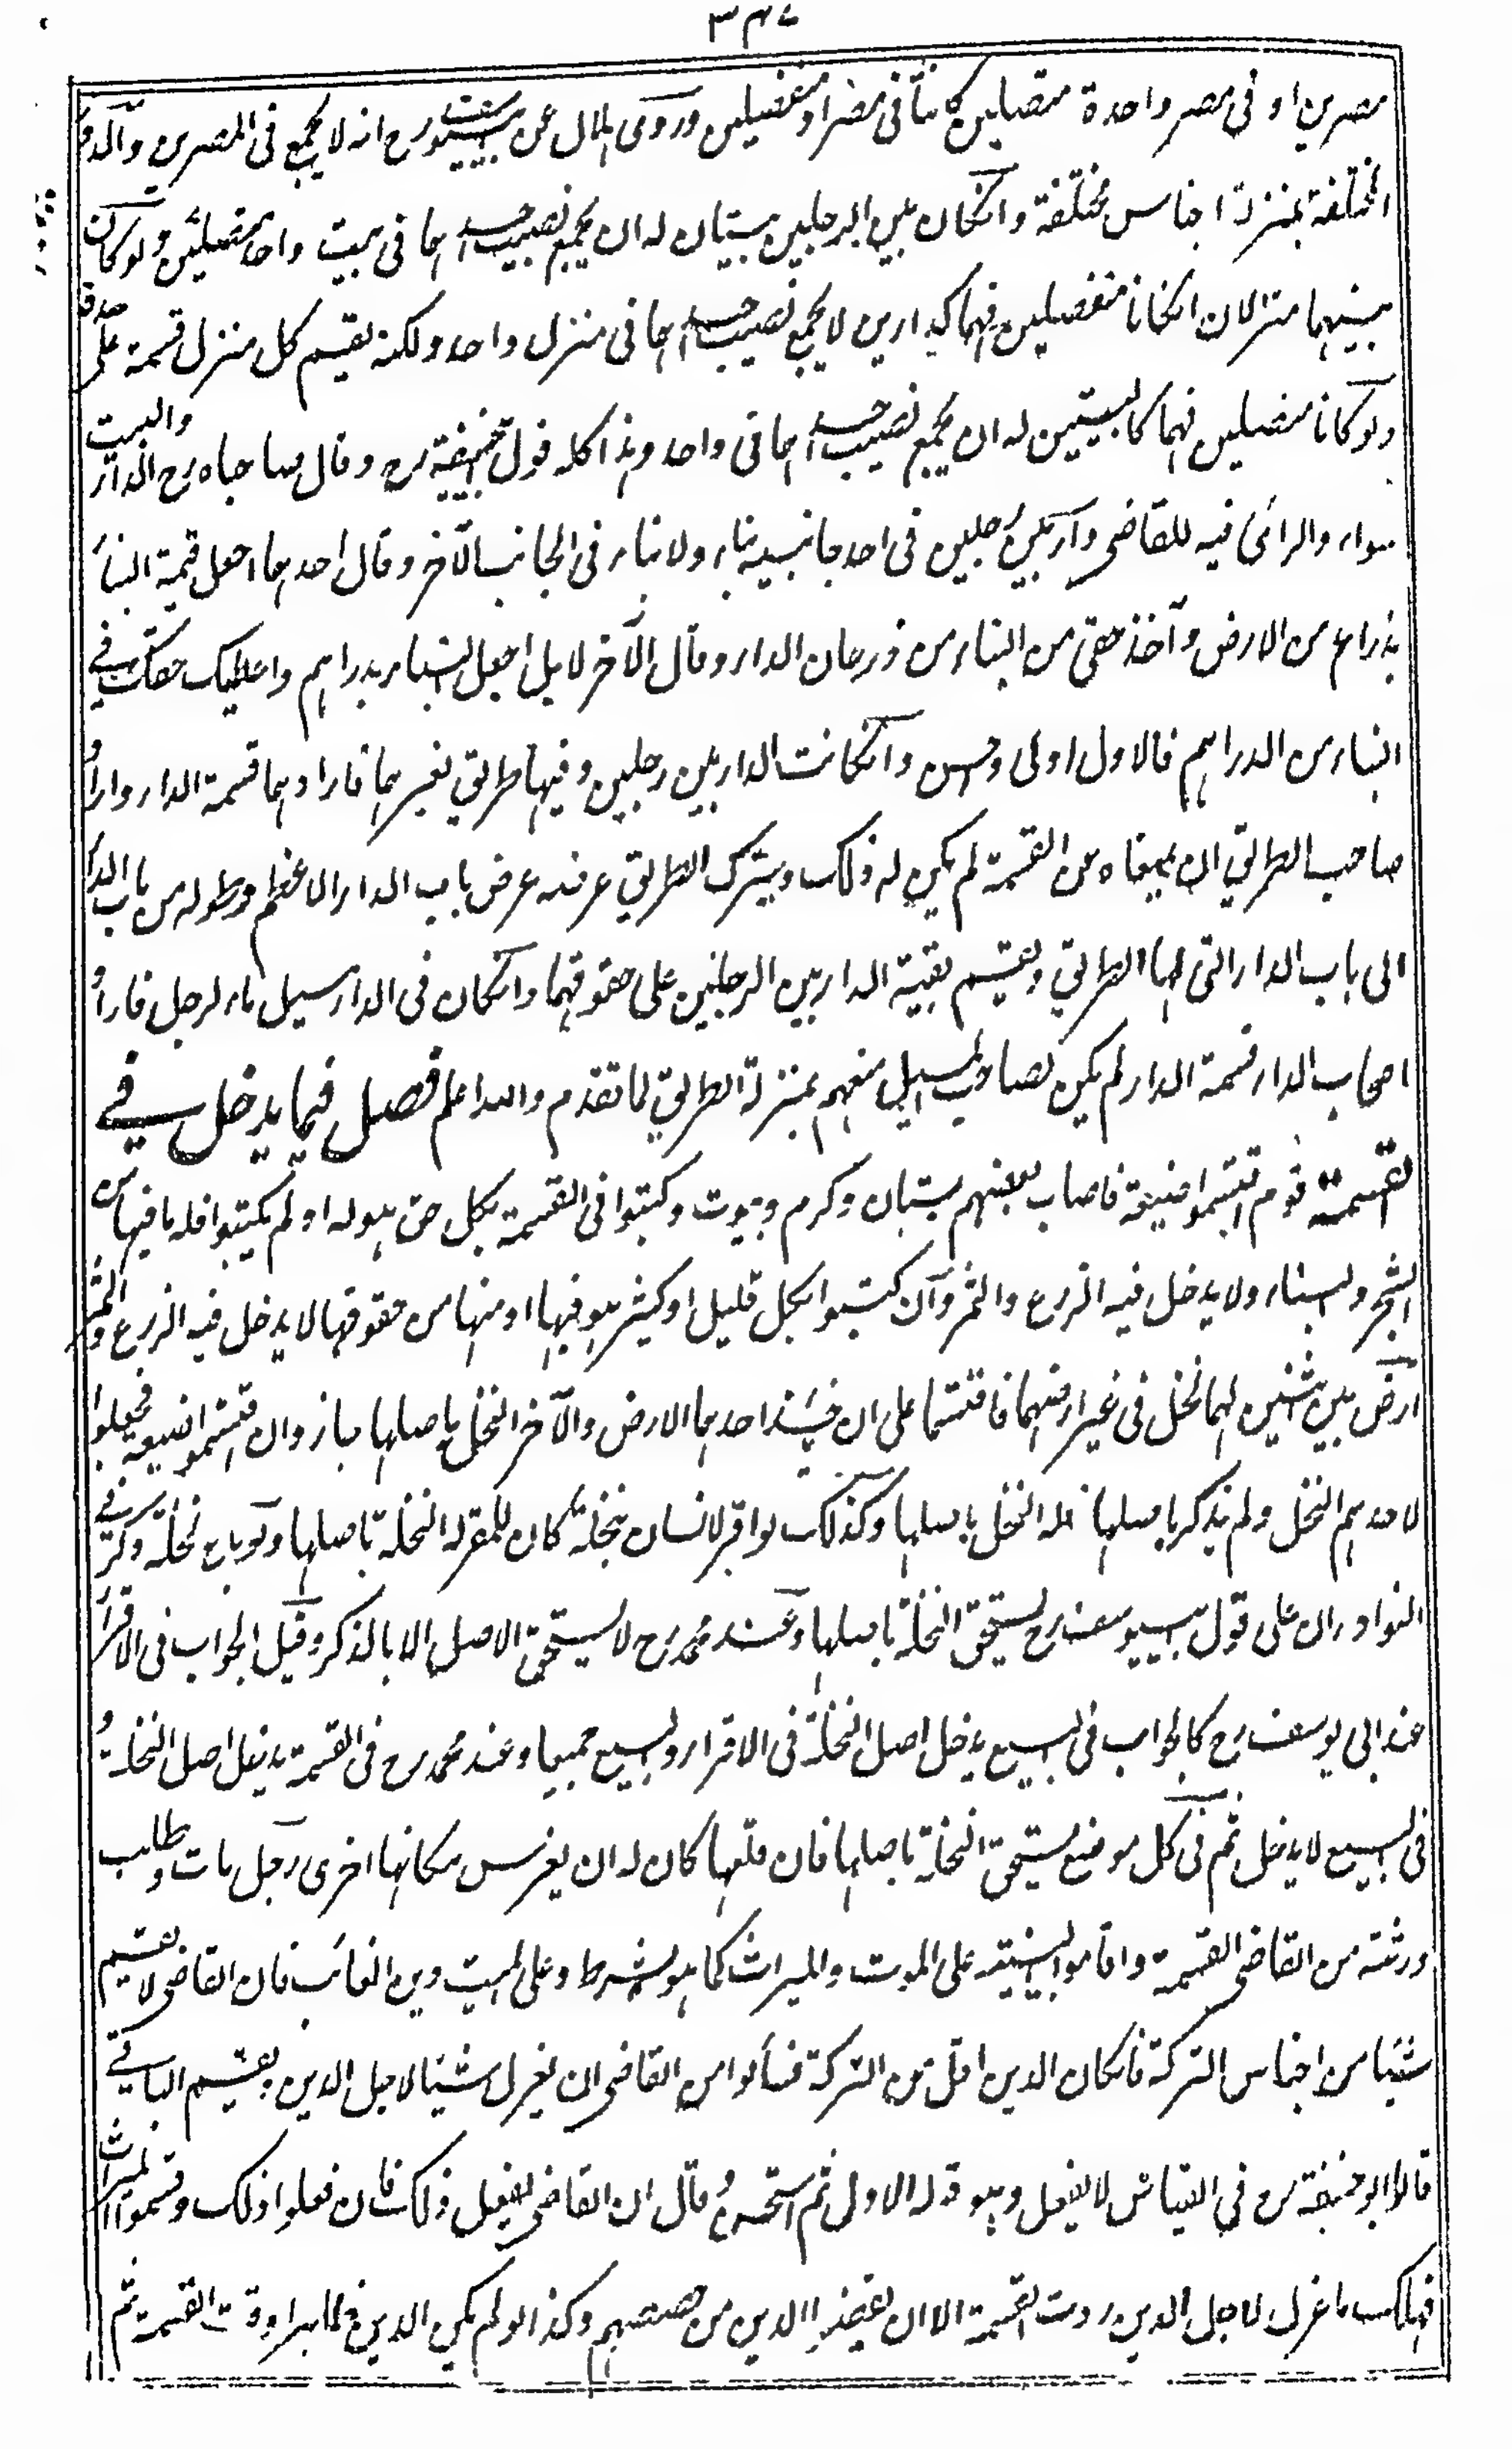 ٣٤٧
مصرين او فى مصر واحدة متصلين كانتا فى مصر او منفصلين وروى هلال عن ابى يوسف رح انه لا يجمع فى المصرين والدور
المختلفة بمنزلة اجناس مختلفة وانكان بين الرجلين بيتان له ان يجمع نصيب احدهما فى بيت واحد متصلين ولو كان
بينهما منزلان انكانا منفصلين فهما كدارين لا يجمع نصيب احدهما فى منزل واحد ولكنه يقسم كل منزل قسمة على حدة
ولو كانا متصلين فهما كالبيتين له ان يجمع نصيب احدهما فى واحد وهذا كله قول ابى حنيفة رح وقال صاحباه رح الدار والبيت
سواء والراى فيه للقاضى دار بين رجلين فى احد جانبيه بناء ولا بناء فى الجانب الآخر وقال احدهما اجعل قيمة البناء
بذراع من الارض وآخذ حقى من البناء من ذرعان الدار وقال الآخر لا بل اجعل البناء بدراهم واعطيك حقك فى
البناء من الدراهم فالاول اولى وحسن وانكانت الدار بين رجلين وفيها طريق لغيرهما فارادهما قسمة الدار واراد
صاحب الطريق ان يمنعاه من القسمة لم يكن له ذلك ويترك الطريق عرضه عرض باب الدار الاعظم وطوله من باب الدار
الى باب الدار التى لها الطريق ويقسم بقية الدار بين الرجلين على حقوقهما وانكان فى الدار مسيل ماء لرجل فاراد
اصحاب الدار قسمة الدار لم يكن لصاحب المسيل منعهم بمنزلة الطريق لما تقدم والله اعلم فصل فيما يدخل فى
القسمة قوم اقتسموا ضيعة فاصاب بعضهم بستان وكرم وبيوت وكتبوا فى القسمة بكل حق هو له او لم يكتبوا فله ما فيها من
الشجر والبناء ولا يدخل فيه الزرع والثمر وان كتبوا بكل قليل او كثير هو فيها او منها من حقوقها لا يدخل فيه الزرع والثمر
ارض بين اثنين لهما نخل فى غير ارضهما فاقتسما على ان ياخذ احدهما الارض والآخر النخل باصلها جاز وان اقتسموا ضيعة فجعلوا
لاحدهم النخل ولم يذكر باصلها فله النخل باصلها وكذلك لو اقر لانسان بنخلة كان للمقر له النخلة باصلها ولو باع نخلة ذكر فى
النوادر ان على قول ابى يوسف رح يستحق النخلة باصلها وعند محمد رح لا يستحق الاصل الا بالذكر وقيل الجواب فى الاقرار
عند ابى يوسف رح كالجواب فى البيع يدخل اصل النخلة فى الاقرار والبيع جميعا وعند محمد رح فى القسمة يدخل اصل النخلة و
فى البيع لا يدخل ثم فى كل موضع يستحق النخلة باصلها فان قلعها كان له ان يغرس مكانها اخرى رجل مات وطلب
ورثته من القاضى القسمة واقاموا البينة على الموت والميراث كما هو الشرط وعلى الميت دين الغائب فان القاضى لا يقسم
شيئا من اجناس التركة فانكان الدين اقل من التركة فسألوا من القاضى ان يعزل شيئا لاجل الدين ويقسم الباقى
قال ابو حنيفة رح فى القياس لا يفعل وهو قوله الاول ثم استحسن وقال ان القاضى يفعل ذلك فان فعلوا ذلك وقسموا الميراث
فهلك ما عزل لاجل الدين ردت القسمة الا ان يقضوا الدين من حصصهم وكذا لو لم يكن الدين ظاهرا وقت القسمة ثم